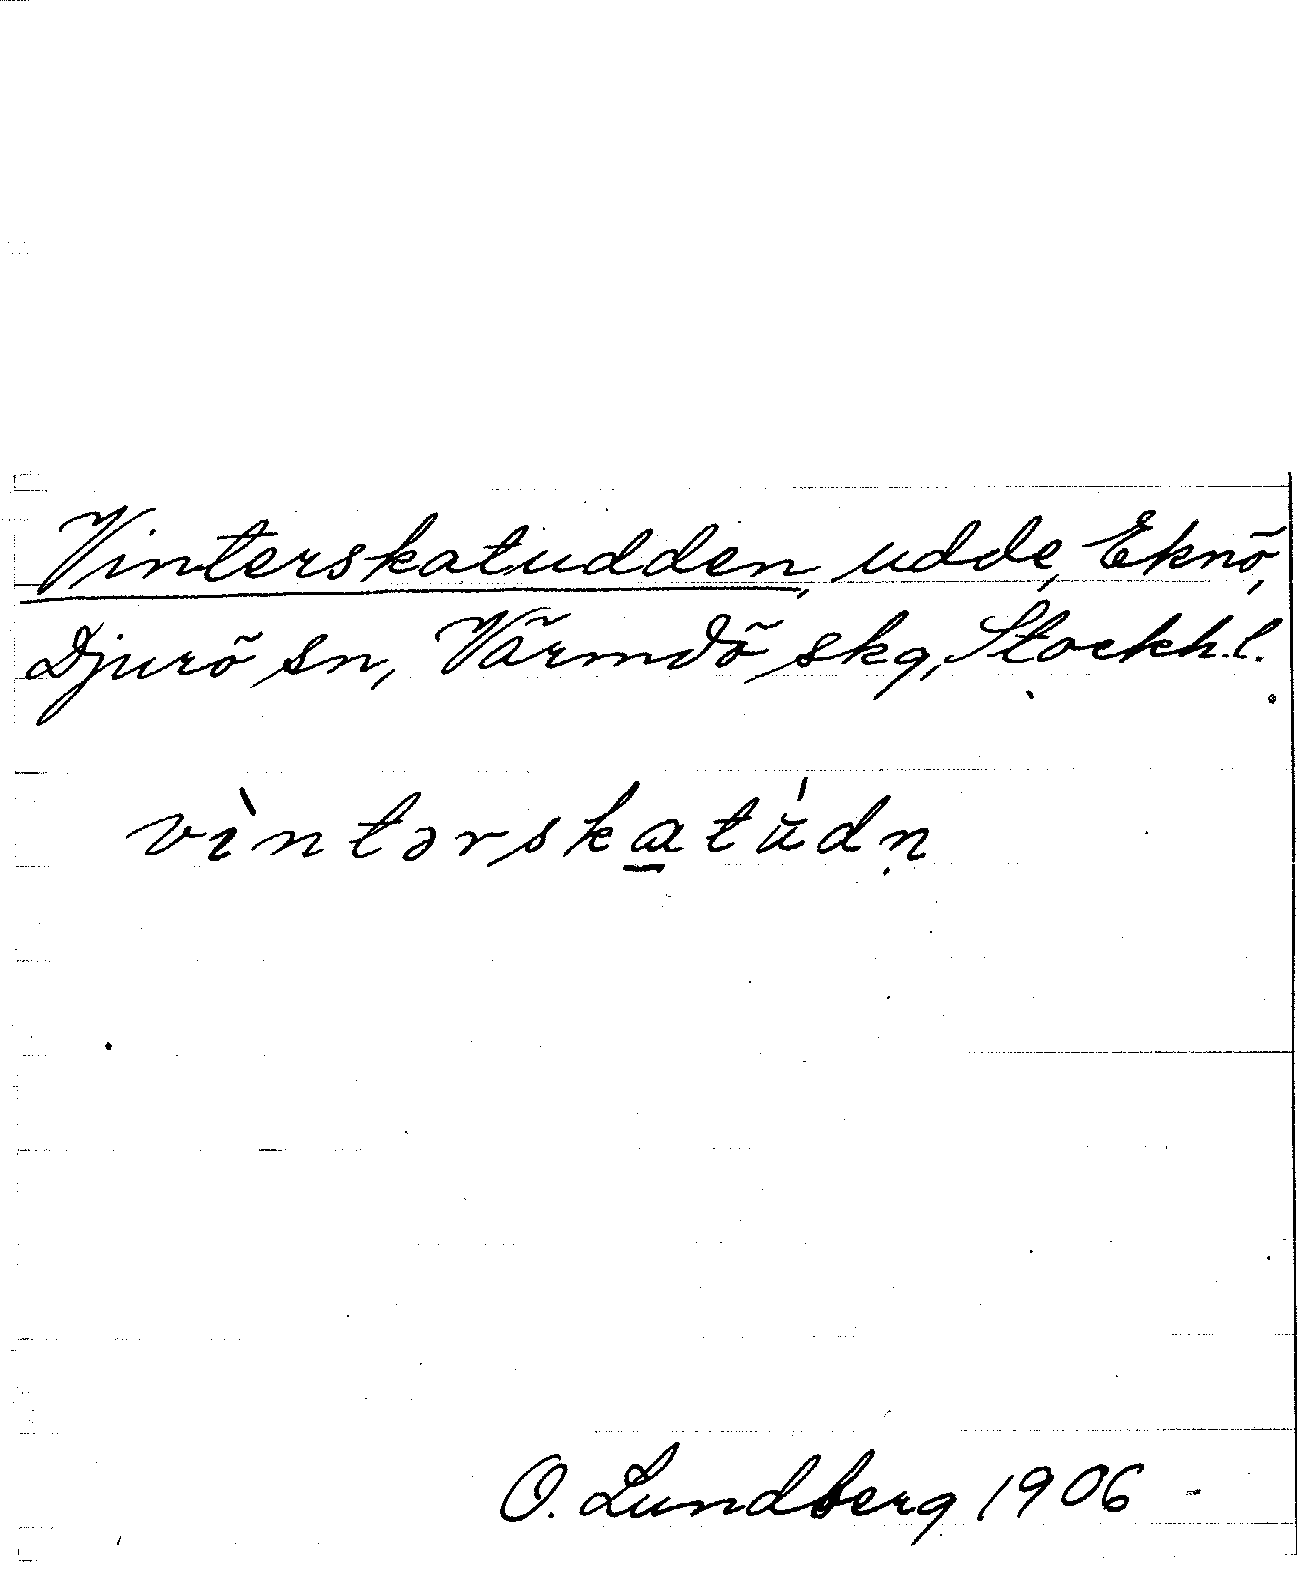 Vinterskatudden, udde, Eknö,
Djurö sn, Värmdö skg, Stockh. l.
vìntərska̲tú̈dn̥
O. Lundberg 1906 -